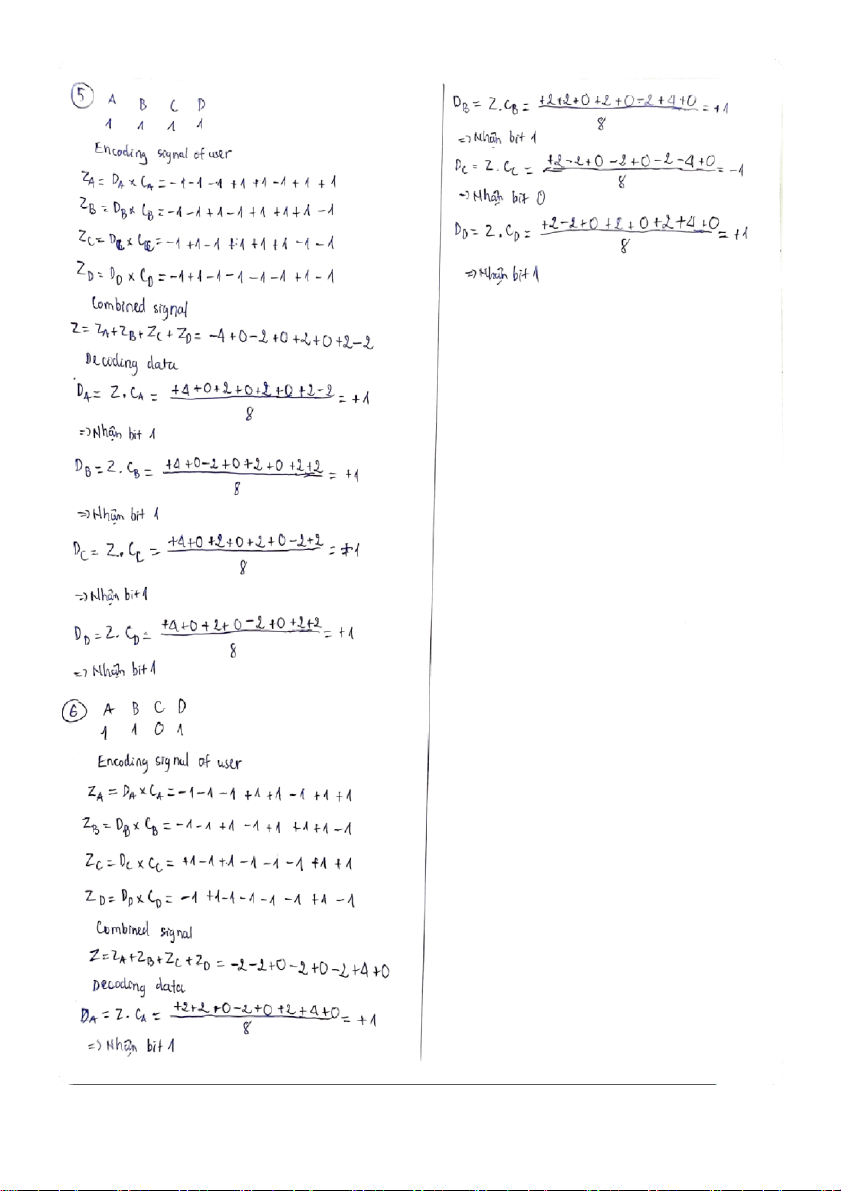 ⑤ A B C D
1 1 1 1
Encoding signal of user
Z_A = D_A x C_A = -1 -1 -1 +1 +1 -1 +1 +1
Z_B = D_B x C_B = -1 -1 +1 -1 +1 +1 +1 -1
Z_C = D_C x C_C = -1 +1 -1 +1 +1 +1 -1 -1
Z_D = D_D x C_D = -1 +1 -1 -1 -1 -1 +1 -1
Combined signal
Z = Z_A + Z_B + Z_C + Z_D = -4 +0 -2 +0 +2 +0 +2 -2
Decoding data
D_A = Z . C_A = (+4 +0 +2 +0 +2 +0 +2 -2)/8 = +1
=> Nhận bit 1
D_B = Z . C_B = (+4 +0 -2 +0 +2 +0 +2 +2)/8 = +1
=> Nhận bit 1
D_C = Z . C_C = (+4 +0 +2 +0 +2 +0 -2 +2)/8 = +1
=> Nhận bit 1
D_D = Z . C_D = (+4 +0 +2 +0 -2 +0 +2 +2)/8 = +1
=> Nhận bit 1
⑥ A B C D
1 1 0 1
Encoding signal of user
Z_A = D_A x C_A = -1 -1 -1 +1 +1 -1 +1 +1
Z_B = D_B x C_B = -1 -1 +1 -1 +1 +1 +1 -1
Z_C = D_C x C_C = +1 -1 +1 -1 -1 -1 +1 +1
Z_D = D_D x C_D = -1 +1 -1 -1 -1 -1 +1 -1
Combined signal
Z = Z_A + Z_B + Z_C + Z_D = -2 -2 +0 -2 +0 -2 +4 +0
Decoding data
D_A = Z . C_A = (+2 +2 +0 -2 +0 +2 +4 +0)/8 = +1
=> Nhận bit 1
D_B = Z . C_B = (+2 +2 +0 +2 +0 -2 +4 +0)/8 = +1
=> Nhận bit 1
D_C = Z . C_C = (+2 -2 +0 -2 +0 -2 -4 +0)/8 = -1
=> Nhận bit 0
D_D = Z . C_D = (+2 -2 +0 +2 +0 +2 +4 +0)/8 = +1
=> Nhận bit 1